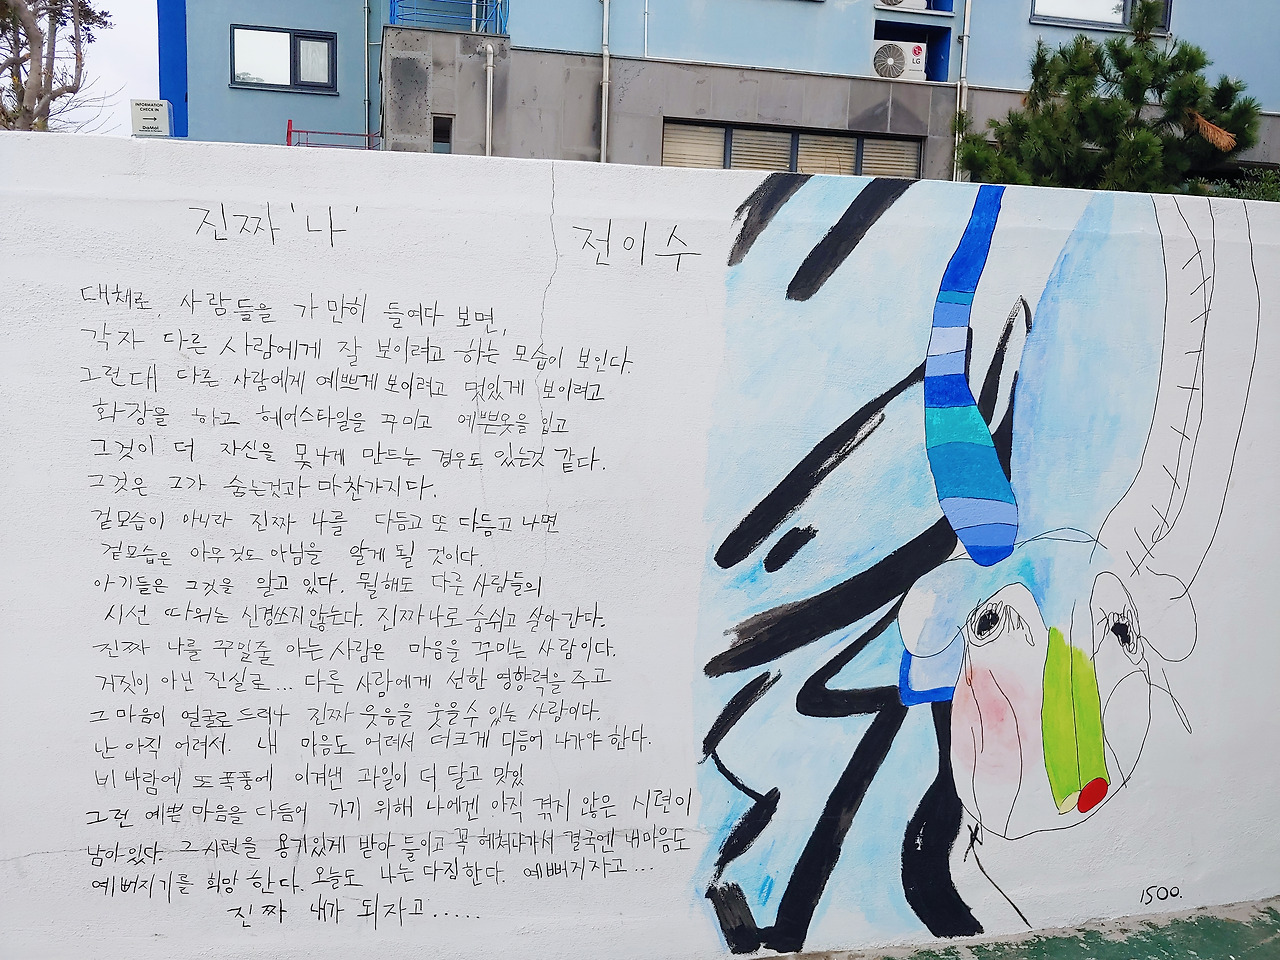 INFORMATION
CHECK IN
LG
진짜 '나'
전이수
대체로, 사람들을 가만히 들여다 보면,
각자 다른 사람에게 잘 보이려고 하는 모습이 보인다.
그런데 다른 사람에게 예쁘게 보이려고 멋있게 보이려고
화장을 하고 헤어스타일을 꾸미고 예쁜옷을 입고
그것이 더 자신을 못나게 만드는 경우도 있는것 같다.
그것은 그가 숨는것과 마찬가지다.
겉모습이 아니라 진짜 나를 다듬고 또 다듬고 나면
겉모습은 아무것도 아님을 알게 될 것이다.
아기들은 그것을 알고 있다. 뭘해도 다른 사람들의
시선 따위는 신경쓰지않는다. 진짜나로 숨쉬고 살아간다.
진짜 나를 꾸밀줄 아는 사람은 마음을 꾸미는 사람이다.
거짓이 아닌 진실로... 다른 사람에게 선한 영향력을 주고
그 마음이 얼굴로 드러나 진짜 웃음을 웃을수 있는 사람이다.
난 아직 어려서. 내 마음도 어려서 더크게 다듬어 나가야 한다.
비바람에 또 폭풍에 이겨낸 과일이 더 달고 맛있
그런 예쁜 마음을 다듬어 가기 위해 나에겐 아직 겪지 않은 시련이
남아있다. 그 시련을 용기있게 받아들이고 꼭 헤쳐나가서 결국엔 내마음도
예뻐지기를 희망한다. 오늘도 나는 다짐한다. 예뻐지자고...
진짜 내가 되자고......
1500.